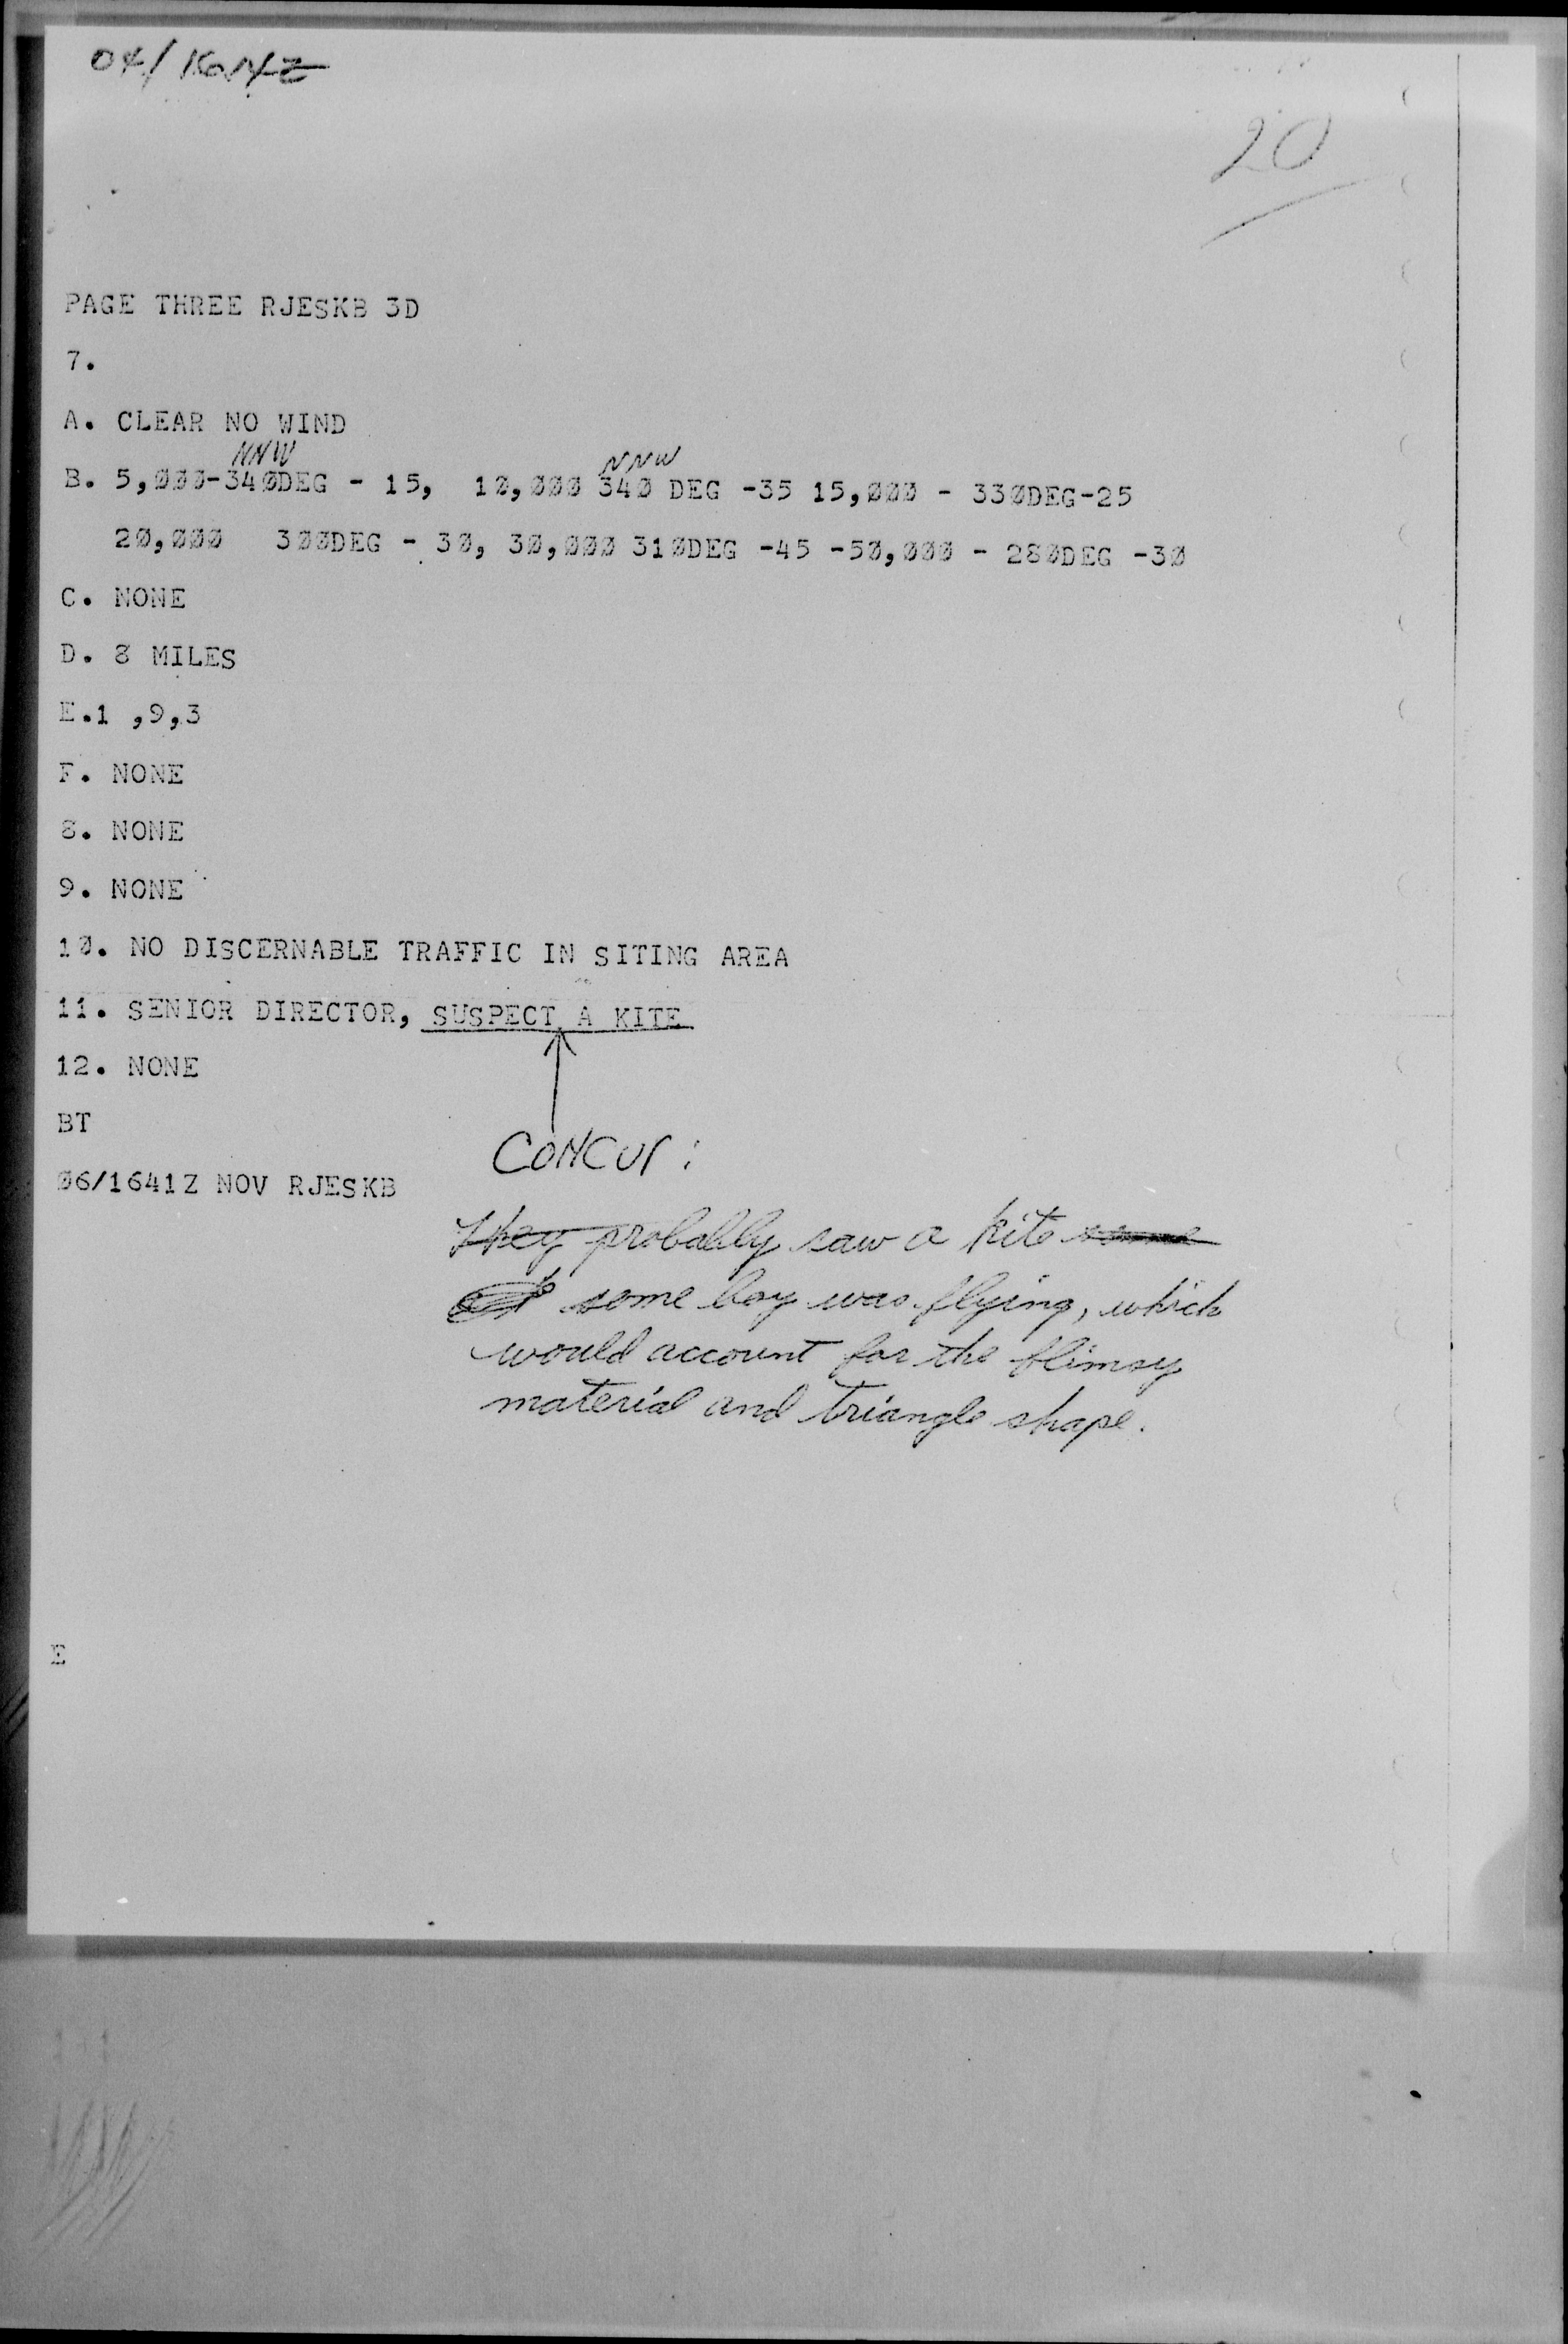 04/1614Z
20
PAGE THREE RJESKB 3D
7.
A. CLEAR NO WIND
NNW NNW
B. 5,000-340DEG - 15, 10,000 340 DEG -35 15,000 - 330DEG-25
20,000 300DEG - 30, 30,000 310DEG -45 -50,000 - 280DEG -30
C. NONE
D. 8 MILES
E.1 ,9,3
F. NONE
8. NONE
9. NONE
10. NO DISCERNABLE TRAFFIC IN SITING AREA
11. SENIOR DIRECTOR, SUSPECT A KITE
12. NONE
BT
CONCUR:
06/1641Z NOV RJESKB
They probably saw a kite some
some boy was flying, which
would account for the flimsy
material and triangle shape.
E